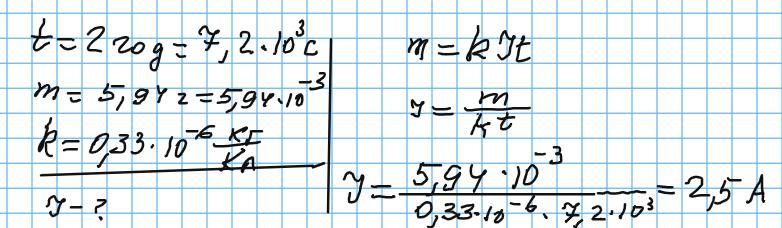 t = 2 год = 7,2·10³ с
m = 5,94 г = 5,94·10⁻³
k = 0,33·10⁻⁶ кг/Кл
I - ?
m = kIt
I = m/kt
I = 5,94·10⁻³ / 0,33·10⁻⁶·7,2·10³ = 2,5 A